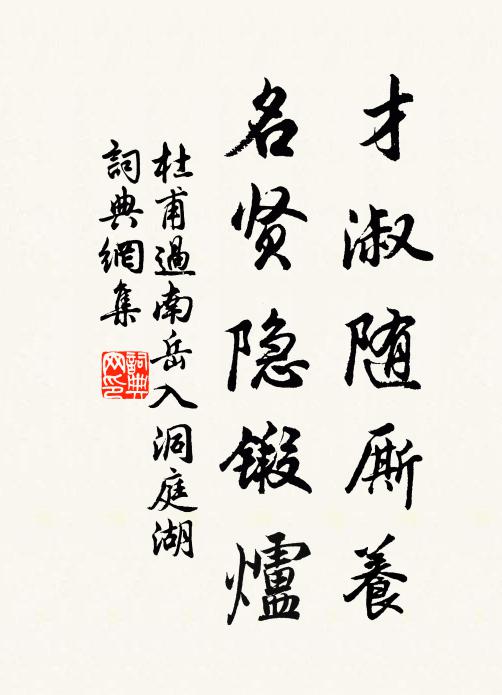 才淑随厮養
名贤隐锻爐
杜甫過南岳入洞庭湖
詞典網集
詞典网印